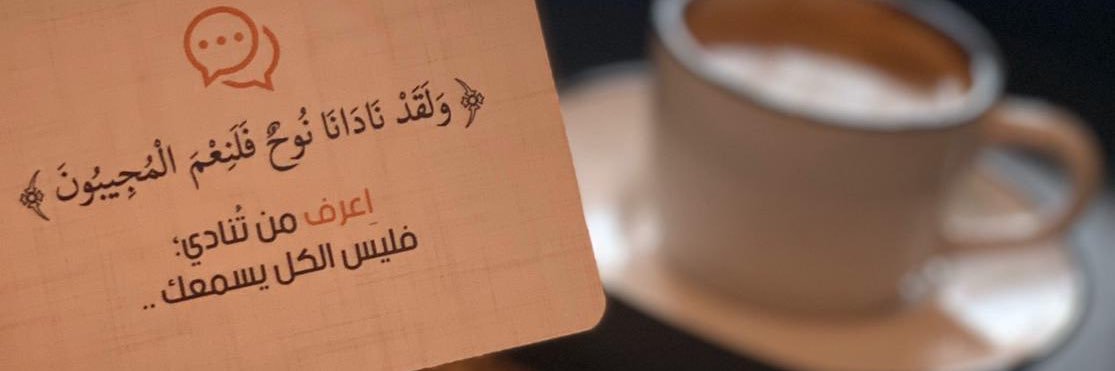 ﴿ وَلَقَدْ نَادَانَا نُوحٌ فَلَنِعْمَ الْمُجِيبُونَ ﴾
اِعرف من تُنادي؛
فليس الكل يسمعك ..